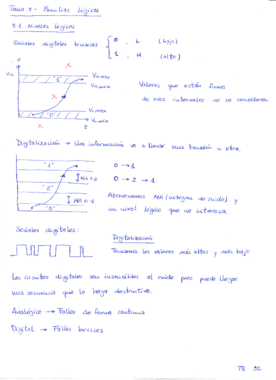 Tema 8 - Familias Lógicas
8.1. Niveles lógicos
Señales digitales tensión
0 , L (bajo)
1 , H (alto)
V
Vcc
"1"
"0"
t
Valores que están fuera
de esos intervalos no se consideran
Digitalización → Una información va a llevar una tensión u otra.
"1"
"2"
"0"
0 → 1
0 → 2 → 1
Atravesamos (margen de ruido) y
un nivel lógico que no interesa
Señales digitales:
Digitalización
Tomamos los valores más altos y más bajo
Los circuitos digitales son insensibles al ruido pero puede llegar
una secuencia que lo haga destructivo.
Analógico → Fallos de forma continua
Digital → Fallos bruscos